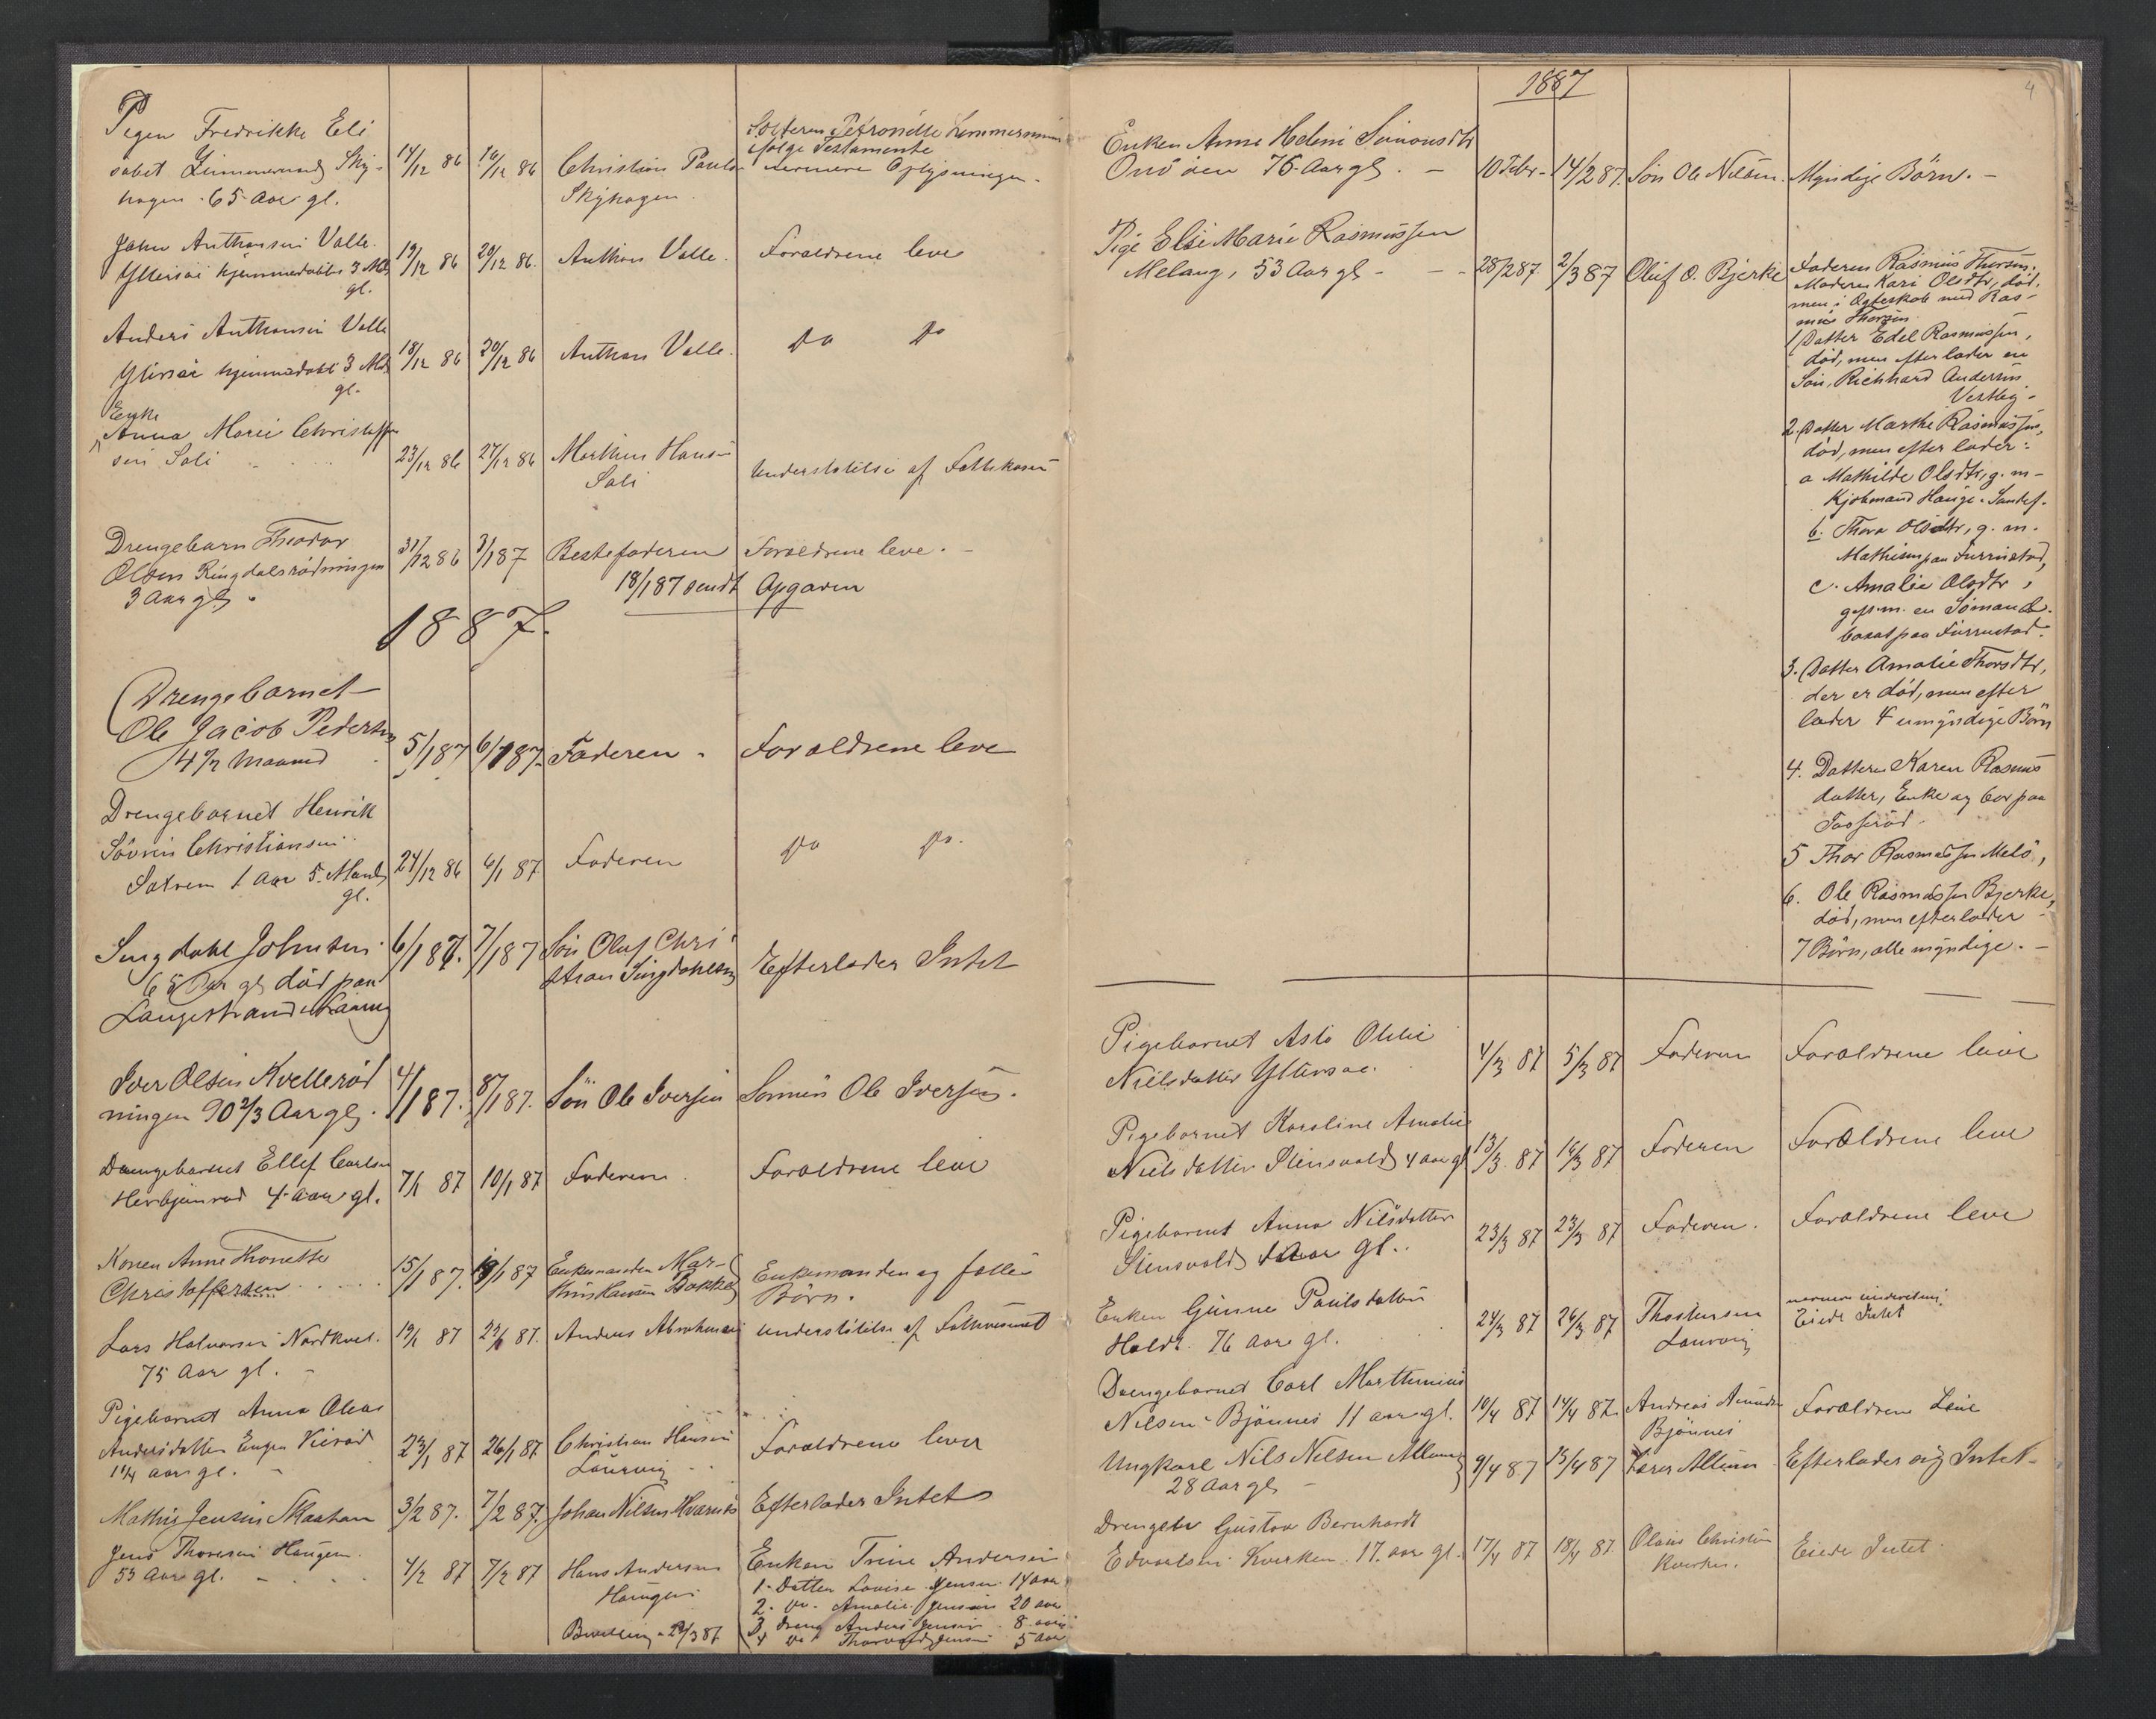 Pigen Fredrikke Eli
sabet Zimmermand Sky-
hagen. 65 Aar gl.
14/12 86 16/12 86 Christian Pauls
Skyhagen
Søsteren Petronelle Zimmermann
ifølge Testamente
nærmere Oplysninger.
Johan Anthonsen Valle
Yttersøe hjemmedøbt 3 Md
gl.
19/12 86 20/12 86. Anthon Valle. Foraldrene leve
Anders Anthonsen Valle
Ytersøe hjemmedøbt 3 Md
gl.
18/12 86 20/12 86 Anthon Valle. Do Do
Enke
Anna Marie Christoffer
sen Soli
23/12 86 27/12 86 Marthin Hans-
Soli
Understøtelse af Fattikasen
Drengebarn Theodor
Olsen Ringdalsrødningen
3 Aar gl.
31/12 86 3/1 87 Bestefaderen Foraldrene leve. -
18/1 87 sendt Opgaven
1887.
Drengebarnet
Ole Jacob Pedersen
4 1/2 Maaned
5/1 87 6/1 87. Faderen. Foraldrene leve
Drengebarnet Henrik
Sövren Christiansen
Satren 1 Aar 5. Maand
gl.
24/12 86 6/1 87 Faderen Do Do.
Singdahl Johnsen
65 Aar gl död paa
Langestrand Laurvig
6/1 87. 7/1 87 Sön Oluf Chri
stian Singdahlsen
Efterlader Intet
Iver Olsen Kvellerød
ningen 90 2/3 Aar gl.
4/1 87. 8/1 87. Sön Ole Iversen Sønnen Ole Iversen.
Drengebarnet Ellef Carlsen
Herbjørnrød 4 Aar gl.
7/1 87 10/1 87 Faderen. Foraldrene leve
Konen Anne Thonette
Christoffersen . . . .
15/1 87. 19/1 87 Enkemanden Mar-
thins Hansen Bakke
Enkemanden og fælles
Börn.
Lars Halvorsen Nordkvel.
75 Aar gl. -
19/1 87 22/1 87. Andreas Abrahamsen understötelse af Fattivæsenet
Pigebarnet Anna Oleas
Andersdatter Engen Vierød
1 1/4 Aar gl. -
23/1 87 26/1 87 Christian Hansen
Laurvig
Foraldrene lever
Mathis Jensen Skaatan 3/2 87. 7/2 87. Johan Nilsen Kvarnes Efterlader Intet
Jens Thoresen Haugen.
53 Aar gl. -
4/2 87 7/2 87 Hans Andersen
Haugen
Bevilling 22/3 87
Enken Trine Andersen
1. Datter Lovise Jensen 14 aar
2. do. Amalie Jensen 20 aar
3 Dreng Anders Jensen 8 aar
4 do Thorvald Jensen 5 Aar
4
1887
Enken Anne Helene Simonsdtr
Onsöien 76. Aar gl. -
10 Febr. - 14/2 87. Sön Ole Nilsen. Myndige Börn. -
Pige Else Marie Rasmussen
Melang, 53 Aar gl -
28/2 87. 2/3 87 Oluf O. Bjerke
Faderen Rasmus Thorsen.
Moderen Kari Olsdtr, död,
men i Ægteskab med Ras-
mus Thorsen
1 Datter Edel Rasmussen,
död, men efterlader en
Sön, Richhard Andersen
Vestby -
2. Datter Marthe Rasmussen,
död, men efterlader:
a Mathilde Olsdtr, g. m -
Kjobmand Hauge. Sandef.
b. Thora Olsdtr, g. m.
Mathisen paa Furrustad,
c. Amalie Olsdtr,
gift m. en Sömand.
bosat paa Furrustad.
3. Datter Amalie Thorsdtr,
der er död, men efter
lader 4 umyndige Börn
4. Datteren Karen Rasmus
datter, Enke og bor paa
Tasserød.
5 Thor Rasmussen Melö,
6. Ole Rasmussen Bjerke,
död, men efterlader -
7 Börn, alle myndige. -
Pigebarnet Asla Olivie
Nielsdatter Yttersøe.
4/3 87 5/3 87 Faderen Foraldrene leve
Pigebarnet Karoline Amalie
Nielsdatter Stensvold 4 aar gl
13/3 87 16/3 87 Faderen Forældrene leve
Pigebarnet Anna Nilsdatter
Stensvold Aar gl.
23/3 87 23/3 87 Faderen. Foraldrene leve
Enken Gunne Paulsdatter
Holdt. 76 Aar gl.
24/3 87 26/3 87 Thostensen
Laurvig
Eiede Intet
Drengebarnet Carl Marthinius
Nilsen - Bjönnes 11 aar gl.
10/4 87 14/4 87. Andreas Amunds
Bjönnes
Foraldrene Leve
Ungkarl Nils Nilsen Allum
28 Aar gl -
9/4 87 15/4 87 Lars Allum Efterlader sig Intet.
Drengebr Gustav Bernhardt
Edvardsen Kverken 17. aar gl.
17/4 87 18/4 87 Olaus Christen
Kverken.
Eiede Intet.